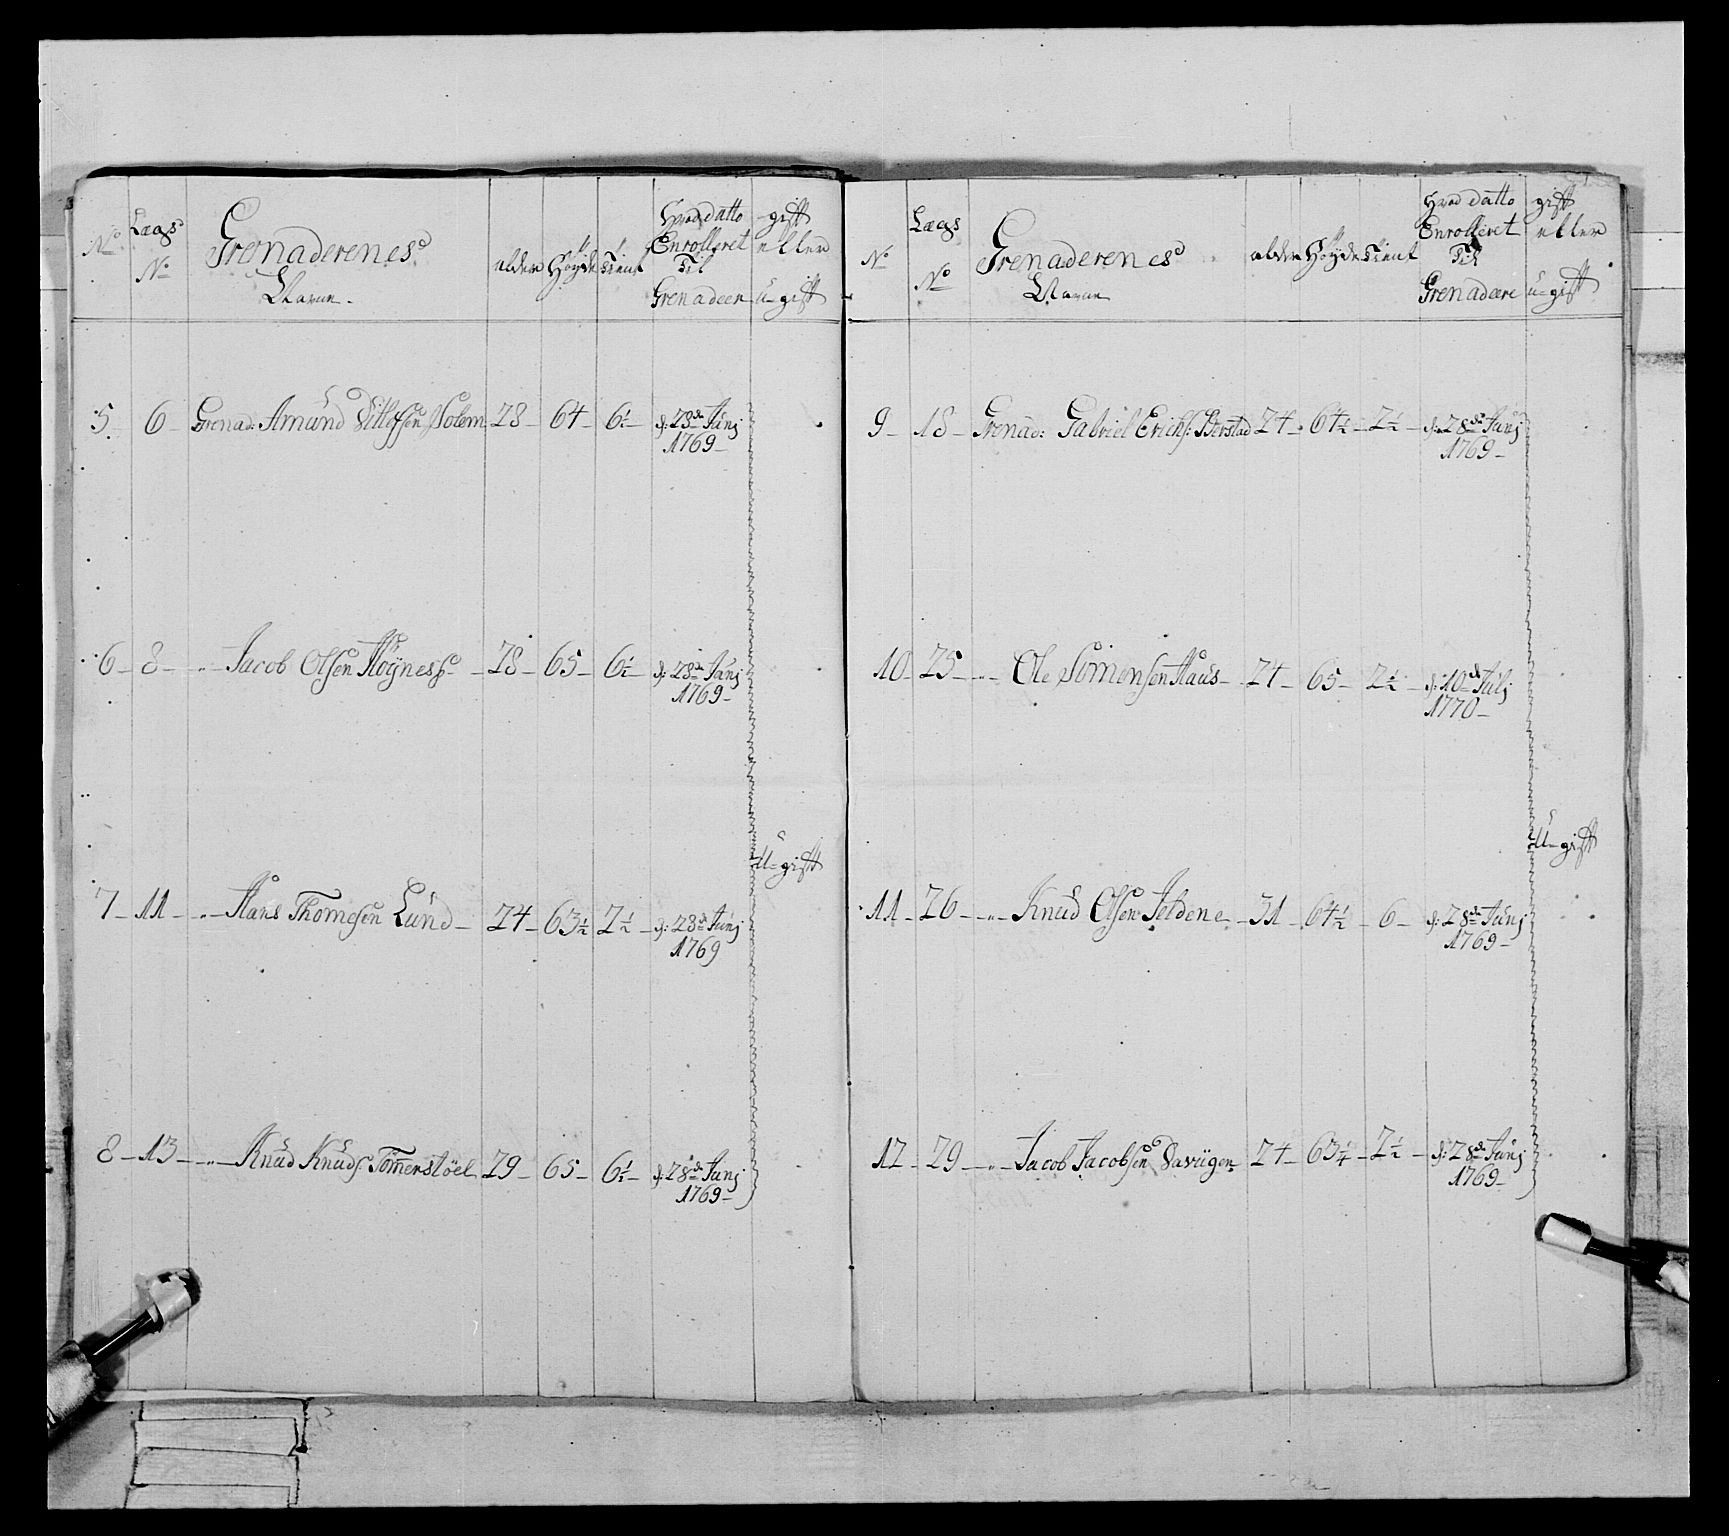 No Lægs No Grenaderenes Navne alder Høyde Tient Hvad datto Enrolleret Til Grenadeer gift eller u-gift
5. 6 Grenad: Amund Solem 28 64 6½ d: 28de Junj
1769
6 8 " Jacob Olsen 28 65 6½ d: 28de Junj
1769
U-gift
7 11 " Hans Thomesen Lund 24 63½ 2½ d: 28de Junj
1769
8 13 " Knud Knuds: 29 65 6½ d: 28de Junj
1769
No Lægs No Grenaderenes Navne alder Høyde Tient Hvad datto Enrolleret Til Grenadeere gift eller u-gift
9 18 Grenad: Gabriel Erichs: Berstad 24 64½ 2½ d: 28de Junj
1769
10 25 " Ole 24 65 2½ d: 10de Julj
1770
U-gift
11 26 " Knud Olsen 31 64½ 6 d: 28de Junj
1769
12 29 " Jacob Jacobsen 24 63¼ 2½ d: 28de Junj
1769